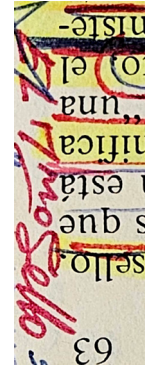 63
sello.
s que
está
nifica
„una
el
niste-
7mo Sello